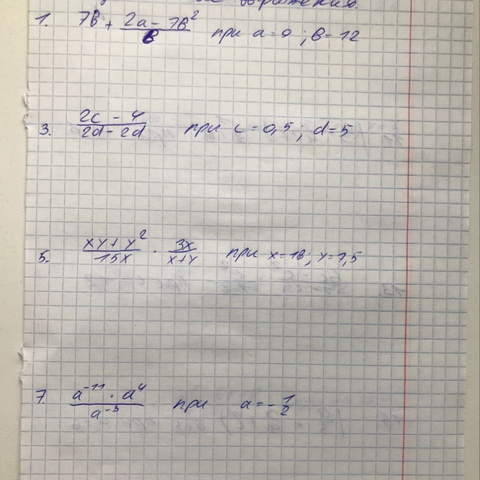 выражения.
1. 7в + (2а - 7в²)/в при а = 9; в = 12
3. (2с - 4)/(2d - 2d) при с = 0,5; d = 5
5. (xy + y²)/(15x) · 3x/(x+y) при x = 18; y = 7,5
7. (a⁻¹¹ · a⁴)/(a⁻³) при a = -1/2